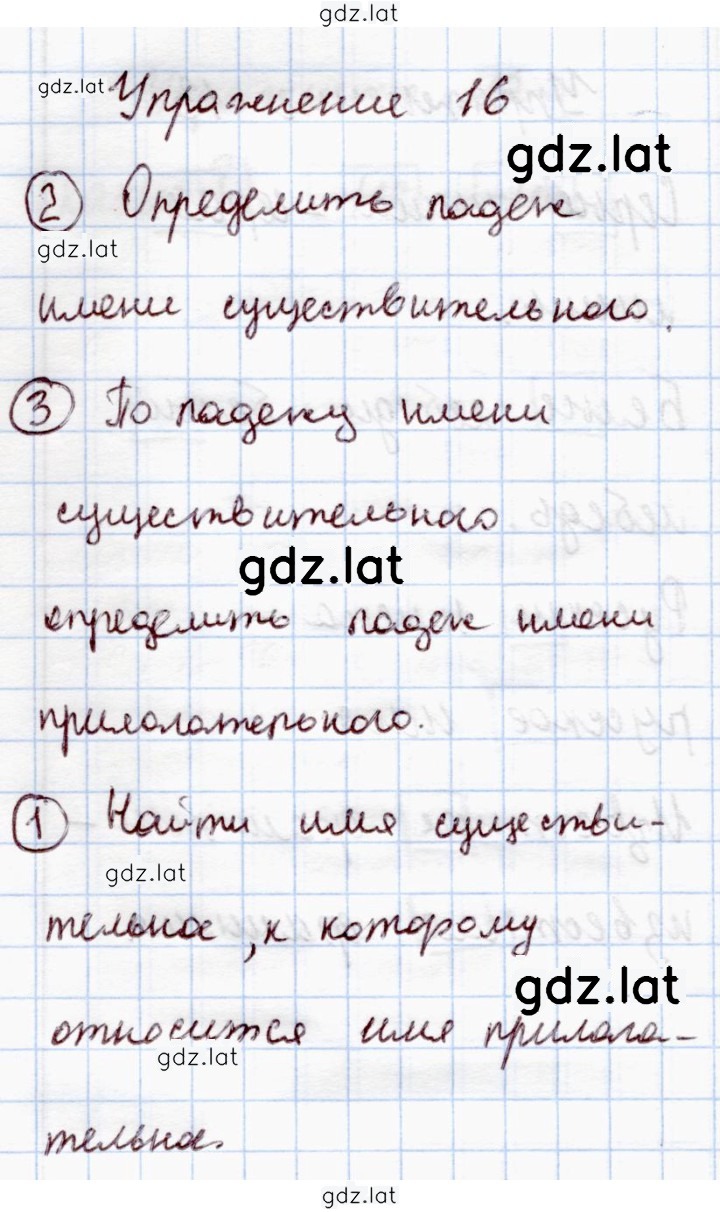 gdz.lat
gdz.lat
Упражнение 16
gdz.lat
2 Определить падеж
gdz.lat
имени существительного.
3 По падежу имени
существительного
gdz.lat
определить падеж имени
прилагательного.
1 Найти имя существи-
gdz.lat
тельное, к которому
gdz.lat
относится имя прилага-
gdz.lat
тельное.
gdz.lat